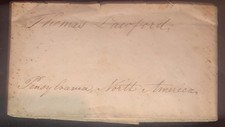 Thomas
Pensylvania North America